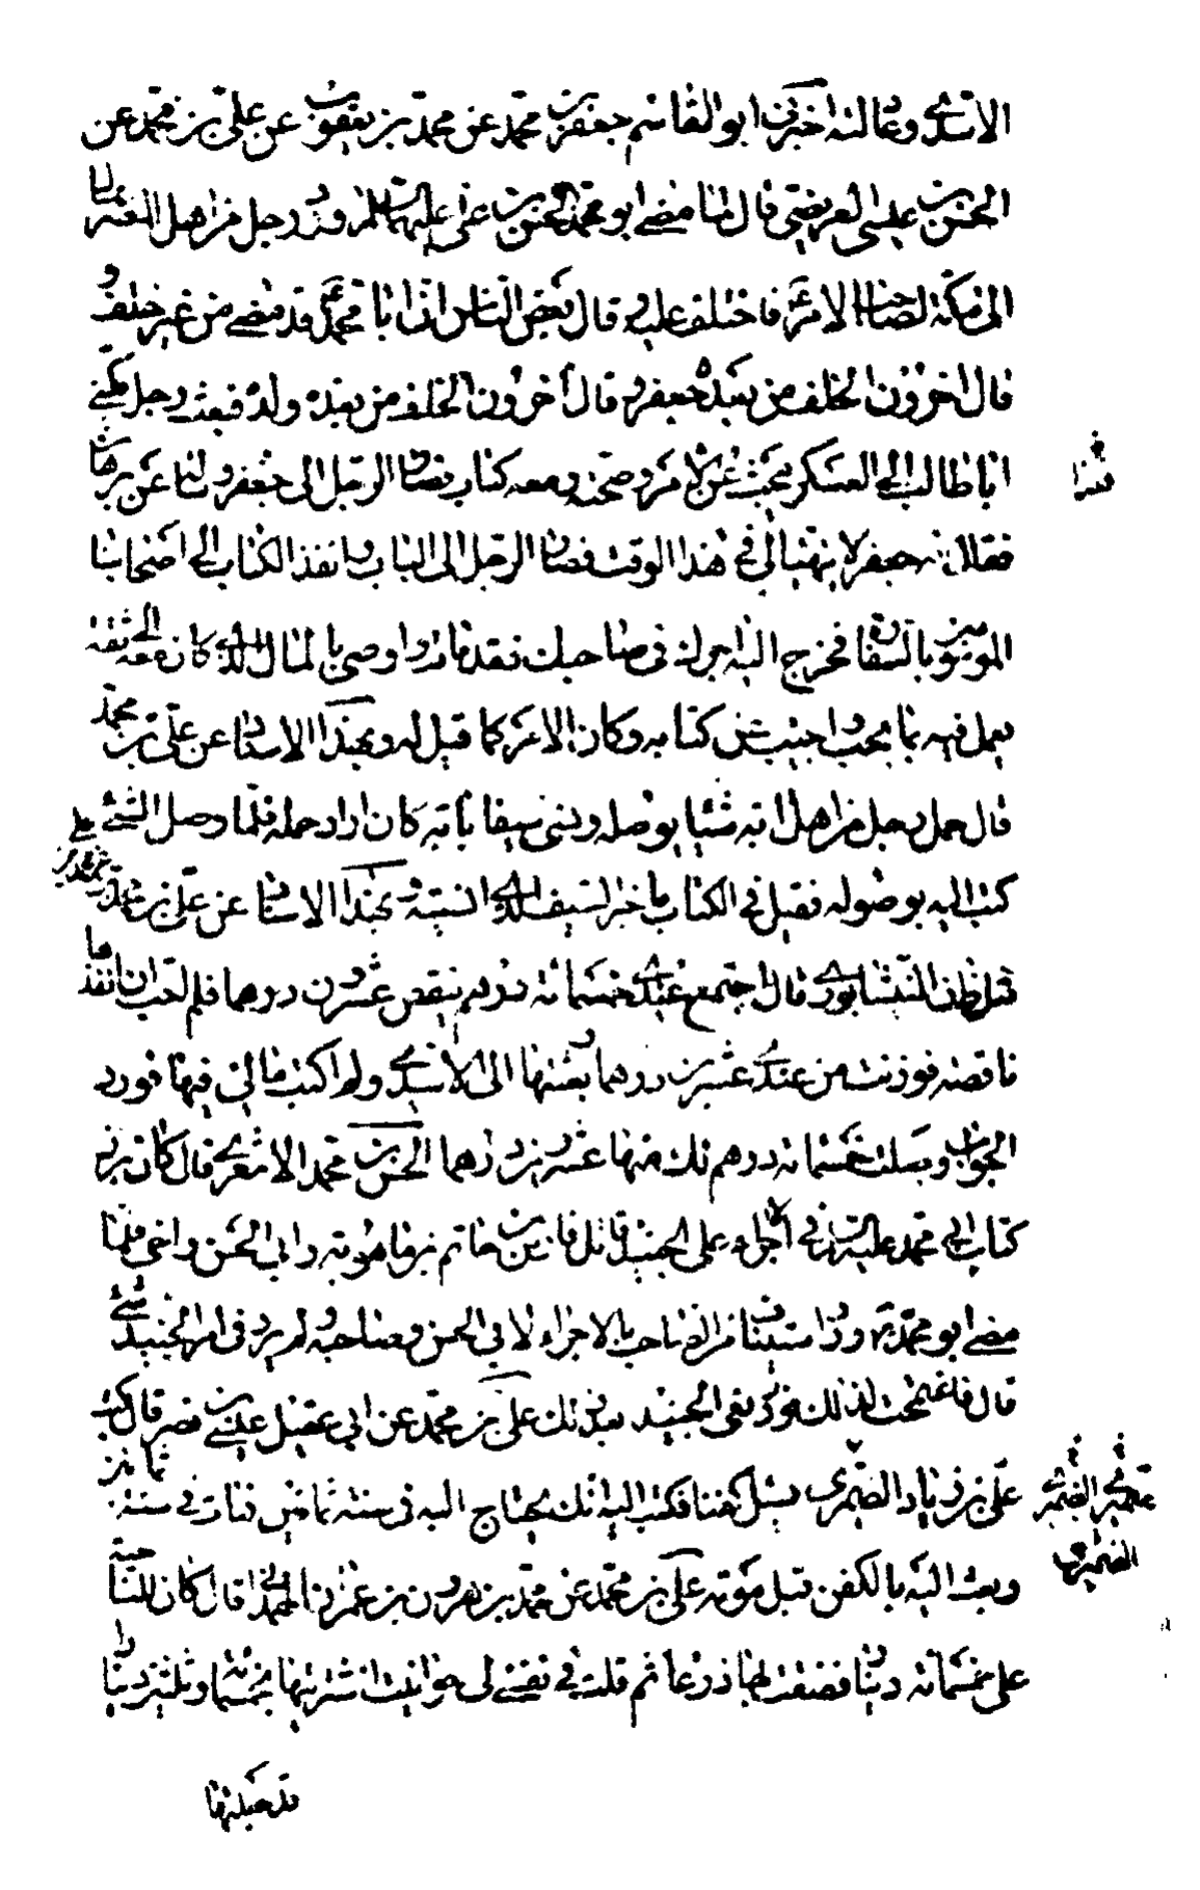 الاسدى وعاله اخبرنى ابو القاسم جعفر بن محمد عن محمد بن يعقوب عن على بن محمد عن
الحسن بن عيسى العريضى قال لما مضى ابو محمد الحسن بن على عليهما السلم ورد رجل من اهل
الى مكة لصاحب الامر فاختلف عليه وقال بعض الناس ان ابا محمد قد مضى من غير خلف و
قال اخرون الخلف من بعده جعفر وقال آخرون الخلف من بعده ولده فبعث رجل يكنى
ابا طالب الى العسكر يبحث عن الامر وصحته ومعه كتاب فصار الرجل الى جعفر وسأله عن برهان
فقال له جعفر لا يتهيأ لى فى هذا الوقت فصار الرجل الى الباب وانفذ الكتاب الى اصحابنا
الموسومين بالسفارة فخرج اليه اجرك فى صاحبك فقد مات واوصى بالمال الذى كان معه الى ثقة
يعمل فيه بما يجب واجيب عن كتابه وكان الامر كما قيل له وبهذا الاسناد عن على بن محمد
قال حمل رجل من اهل آبة شيئا يوصله ونسى سيفا بآبة كان اراد حمله فلما وصل الشئ
كتب اليه بوصوله فقيل فى الكتاب ما خبر السيف الذى انسيته وبهذا الاسناد عن على بن محمد
شاذان النيشابورى قال اجتمع عندى خمسمائة درهم ينقص عشرون درهما فلم احب ان انفذها
ناقصة فوزنت من عندى عشرين درهما بعثتها الى الاسدى ولم اكتب مالى فيها فورد
الجواب وصلت خمسمائة درهم لك منها عشرين درهما الحسن بن محمد الاشعرى قال كان يرد
كتاب ابى محمد عليه السلم فى الاجراء على الجنيد قاتل فارس بن حاتم بن ماهويه وابى الحسن واخى فلما
مضى ابو محمد ورد استيناف من الصاحب بالاجراء لابى الحسن وصاحبه ولم يرد فى امر الجنيد شئ
قال فاغتممت لذلك فورد نعى الجنيد بعد ذلك على بن محمد عن ابى عقيل عيسى بن نصر قال كتب
على بن زياد الصيمرى يسئل كفنا فكتب اليه انك تحتاج اليه فى سنة ثمانين فمات فى سنة ثمانين
وبعث اليه بالكفن قبل موته على بن محمد عن محمد بن هرون بن عمران الهمدانى قال كان للناحية
على خمسمائة دينار فضقت بها ذرعا ثم قلت فى نفسى لى حوانيت اشتريتها بخمسمائة وثلثين دينارا
قد جعلتها
الصيمرى